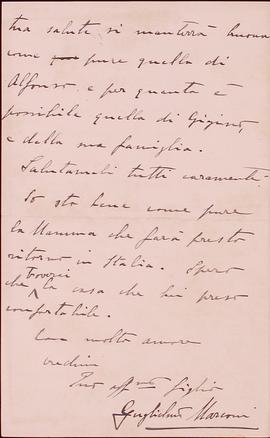 tua salute si manterrà buona
come pure quella di
Alfonso e per quanto è
possibile quella di Gigino,
e della sua famiglia.
Salutameli tutti caramente.
Io sto bene come pure
la Mamma che farà presto
ritorno in Italia. Spero
che troverai la casa che hai preso
confortabile.
Con molto amore
credimi
Tuo aff.mo figlio
Guglielmo Marconi